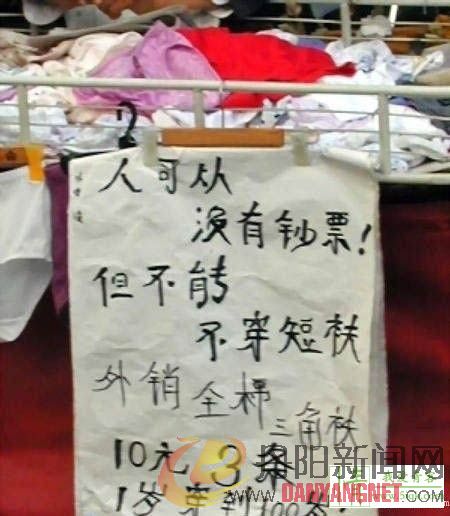 人可从
没有钞票!
但不能
不穿短衭
外销全棉
三角衭
10元3条
1岁穿到100岁
丹阳新闻网
DANYANGNET.COM